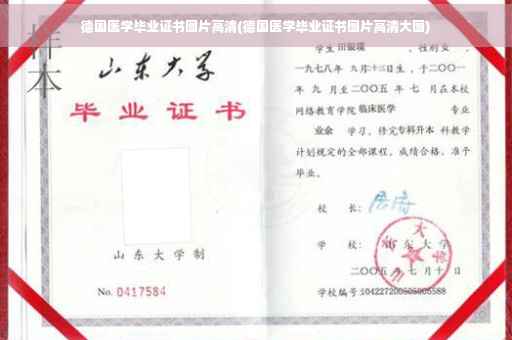 德国医学毕业证书图片高清(德国医学毕业证书图片高清大图)
样本
山东大学
毕业证书
山东大学制
No. 0417584
学生 田银璞 ，性别 女 ，
一九七八年 九月十三日生，于二〇〇一
年 九 月至二〇〇五 年 七 月在本校
网络教育学院 临床医学 专业
业余 学习，修完 专科升本 科教学
计划规定的全部课程，成绩合格，准予
毕业。
校 长：
学 校： 山东大学
二〇〇五 年 七 月 十 日
学校编号:104227200505005588